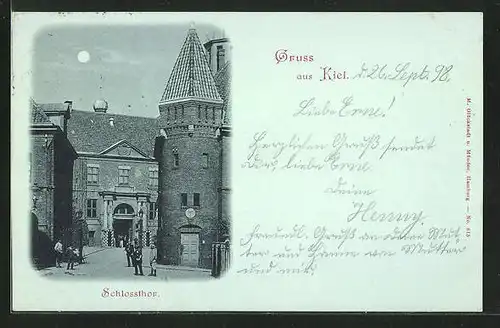 Gruss
aus Kiel. d. 26. Sept. 98.
Liebe Erne!
Herzlichen Gruß sendet
Dir, liebe Erne
Deine
Henny
Freundl. Gruß an deine Mut-
ter und Hanne von Mutter
und mir.
Schlossthor.
M. Glückstadt u. Münden, Hamburg — No. 315